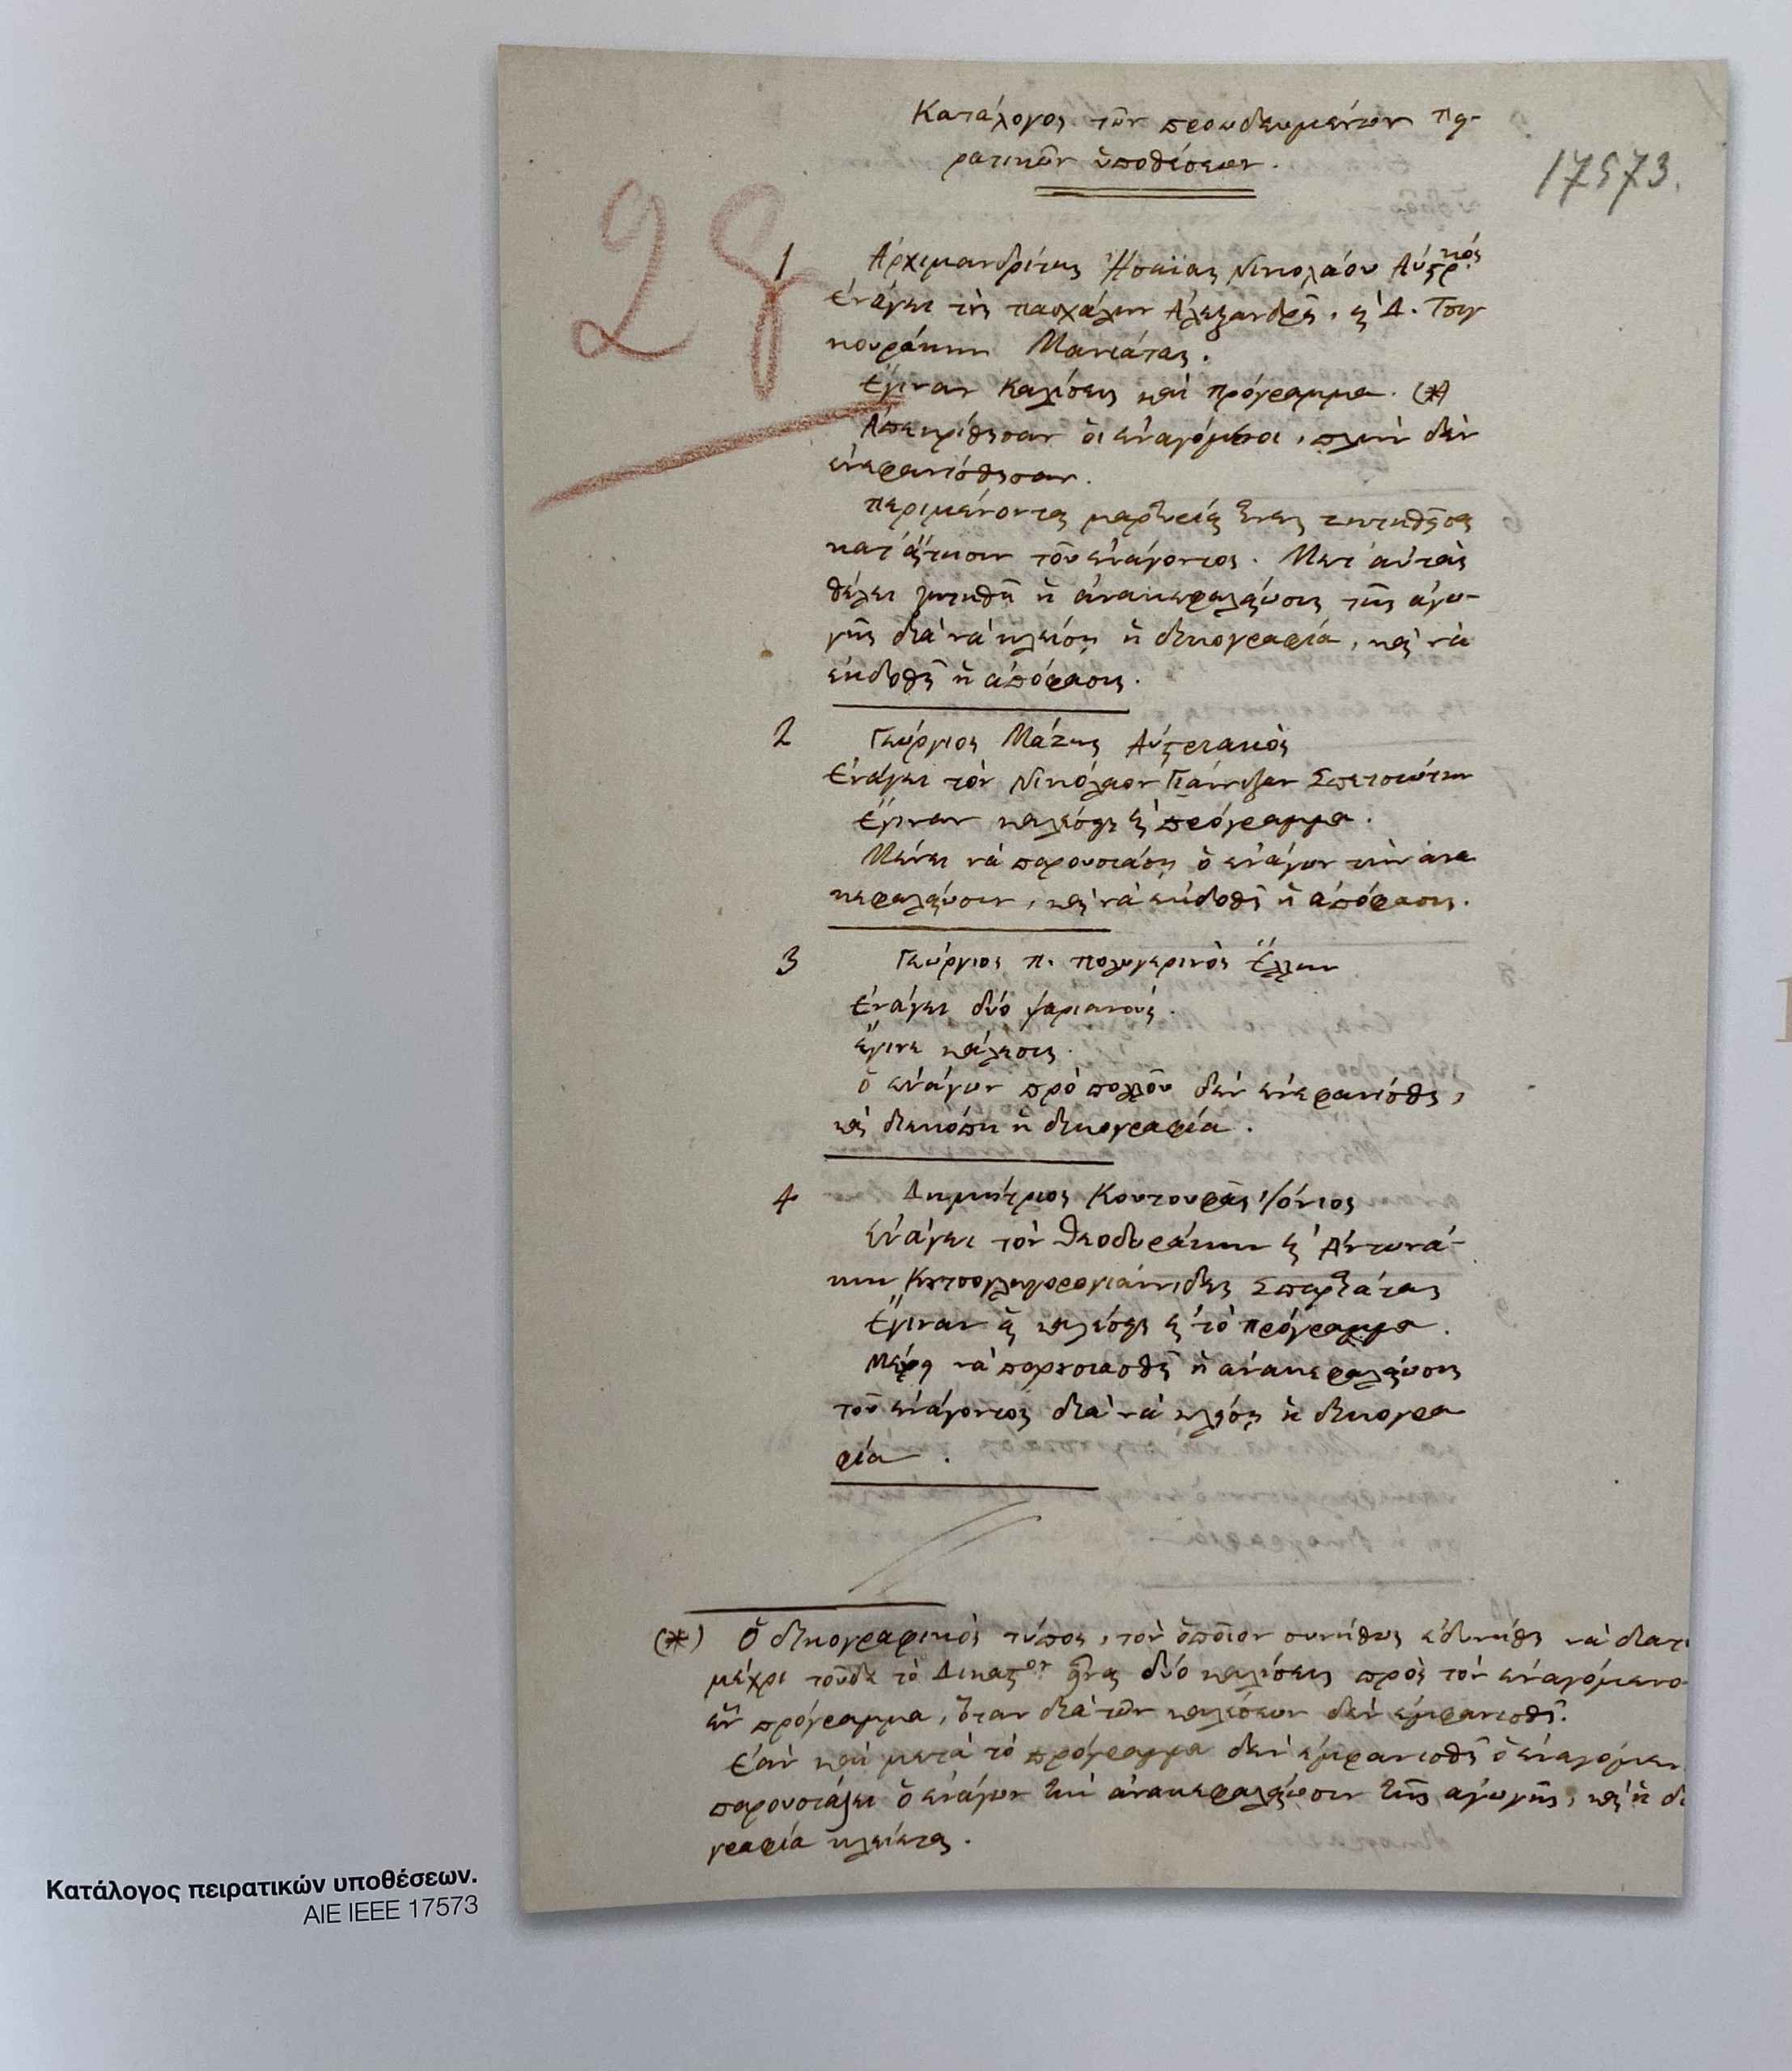 Κατάλογος τῶν προωδευμένων πει-
ρατικῶν ὑποθέσεων.
17573.
28
1 Ἀρχιμανδρίτης Ἡσαΐας Νικολάου Αὐςρ.κός
Ἐνάγει τὸν πασχάλην Ἀλεξανδρῆ, καὶ Δ. Τσιγ
κουράκην Μανιάτας.
Ἔγιναν Καλέσεις καὶ πρόγραμμα. (*)
Ἀπεκρίθησαν οἱ ἐναγόμενοι, πλὴν δὲν
ἐνεφανίσθησαν.
περιμένονται μαρτυρίαι ζητηθεῖσαι
κατ' αἴτησιν τοῦ ἐνάγοντος. Μετ' αὐτὰς
θέλει ζητηθῆ ἡ ἀνακεφαλαίωσις τῆς ἀγω-
γῆς διὰ νὰ κλείσῃ ἡ δικογραφία, καὶ νὰ
ἐκδοθῆ ἡ ἀπόφασις.
2 Γεώργιος Μάζης Αὐςριακὸς
Ἐνάγει τὸν Νικόλαον Γιάννιζαν Σπετσιώτην
Ἔγιναν καλέσεις καὶ πρόγραμμα.
Μένει νὰ παρουσιάσῃ ὁ ἐνάγων τὴν ἀνα
κεφαλαίωσιν, καὶ νὰ ἐκδοθῆ ἡ ἀπόφασις.
3 Γεώργιος π. πολυγερινὸς Ἕλλην
Ἐνάγει δύο ψαριανούς.
ἔγινε κάλεσις.
ὁ ἐνάγων πρὸ πολλοῦ δὲν ἐνεφανίσθη,
καὶ διεκόπη ἡ δικογραφία.
4 Δημήτριος Κουτουφᾶς Ἰόνιος
ἐνάγει τὸν Θεοδωράκην καὶ Ἀντωνά-
κην Σπαρτιάτας
Ἔγιναν αἱ καλέσεις καὶ τὸ πρόγραμμα.
Μένει νὰ παρουσιασθῆ ἡ ἀνακεφαλαίωσις
τοῦ ἐνάγοντος διὰ νὰ κλείσῃ ἡ δικογρα
φία.
(*) Ὁ δικογραφικὸς τύπος, τὸν ὁποῖον συνήθως ἐδυνήθη νὰ διατ
μέχρι τοῦδε τὸ Δικαςον εἶναι δύο καλέσεις πρὸς τὸν ἐναγόμενο
ἓν πρόγραμμα, ὅταν διὰ τῶν καλέσεων δὲν ἐμφανισθῆ.
Ἐὰν καὶ μετὰ τὸ πρόγραμμα δὲν ἐμφανισθῆ ὁ ἐναγόμεν
παρουσιάζει ὁ ἐνάγων τὴν ἀνακεφαλαίωσιν τῆς ἀγωγῆς, καὶ ἡ δι
γραφία κλείεται.
Κατάλογος πειρατικών υποθέσεων.
ΑΙΕ ΙΕΕΕ 17573